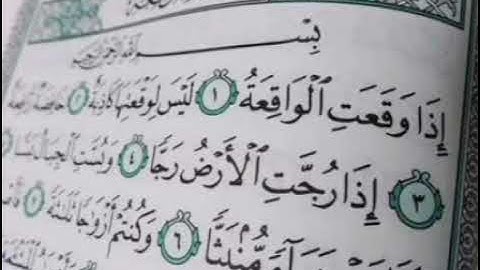 بِسْمِ ٱللَّهِ ٱلرَّحْمَٰنِ ٱلرَّحِيمِ
إِذَا وَقَعَتِ ٱلْوَاقِعَةُ ١ لَيْسَ لِوَقْعَتِهَا كَاذِبَةٌ ٢ خَافِضَةٌ رَّافِعَةٌ
٣ إِذَا رُجَّتِ ٱلْأَرْضُ رَجًّا ٤ وَبُسَّتِ ٱلْجِبَالُ بَسًّا
مُّنۢبَثًّا ٦ وَكُنتُمْ أَزْوَٰجًا ثَلَٰثَةً ٧